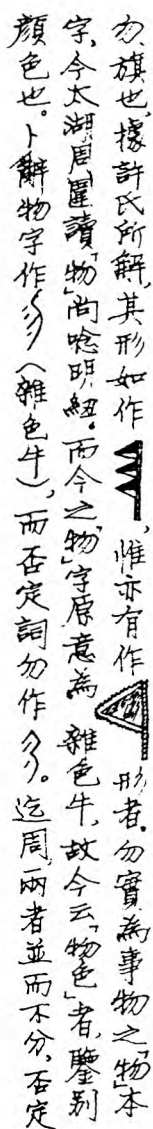 勿，旗也，據許氏所解，其形如作，惟亦有作形者。勿實為事物之「物」本
字，今太湖周圍讀「物」尚唸明紐。而今之「物」字原意為雜色牛，故今云「物色」者，鑒別
顏色也。卜辭物字作（雜色牛），而否定詞勿作。迄周，兩者並而不分，否定